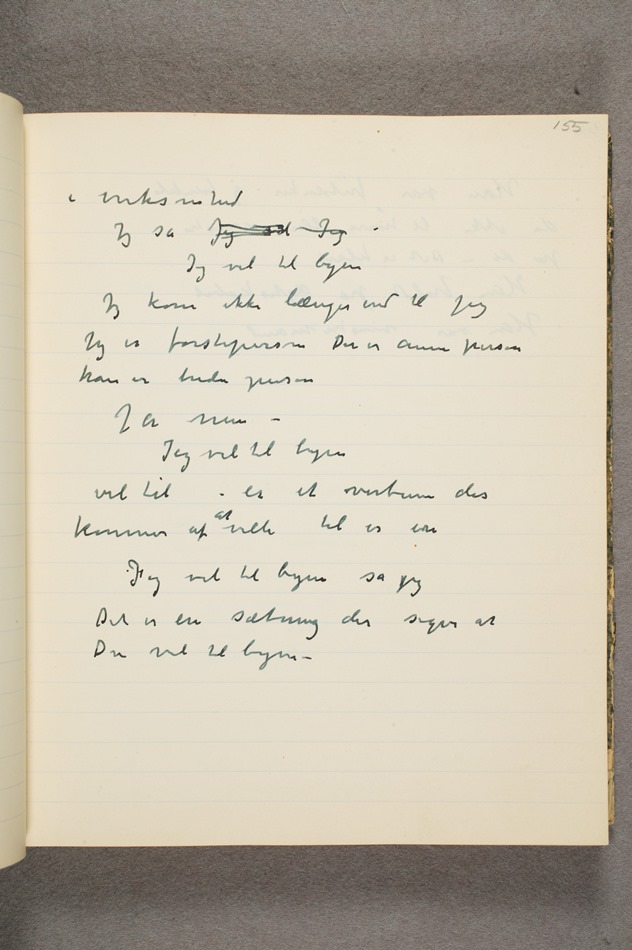 155
i virksomhed
Jeg sa Jeg Jeg
Jeg vil til byen
Jeg kom ikke længer end til jeg
Jeg er førsteperson Du er anden person
han er tredie person
Jeg er
Jeg vil til byen
vil til - er et verbum der
kommer af at ville til er en
Jeg vil til byen sa jeg
Det er en sætning der siger at
Du vil til byen -